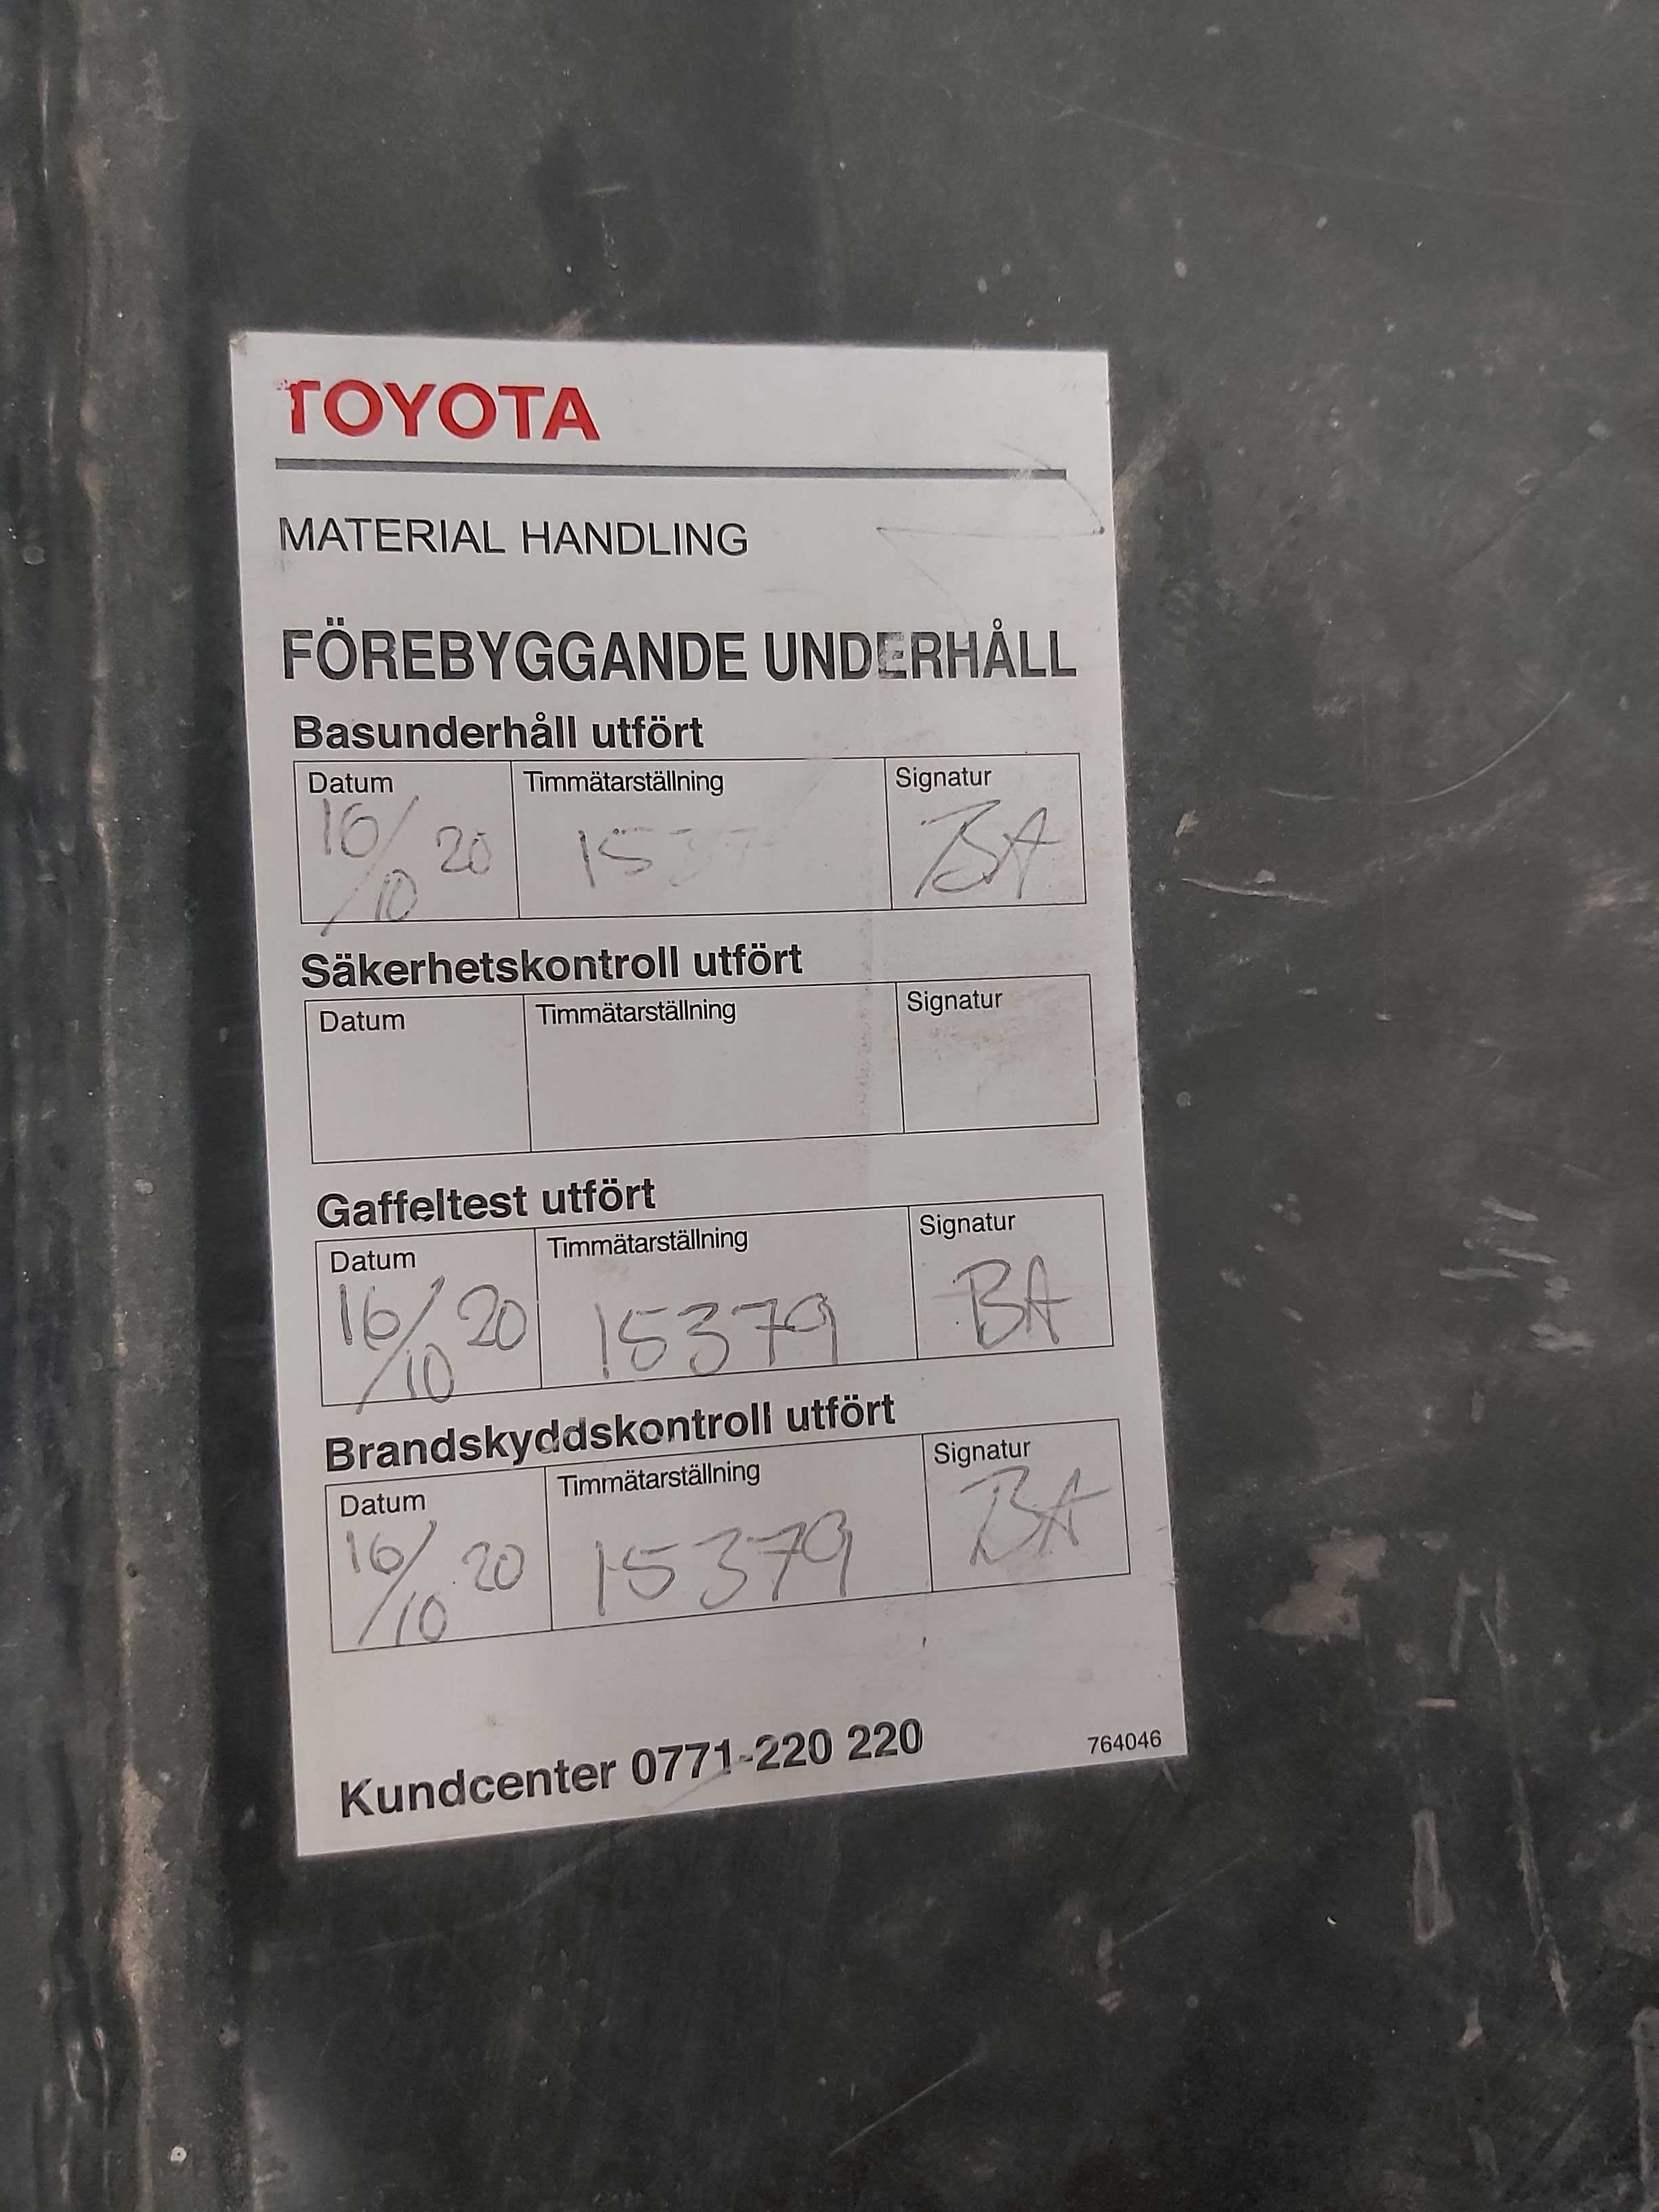 TOYOTA
MATERIAL HANDLING
FÖREBYGGANDE UNDERHÅLL
Basunderhåll utfört
Datum Timmätarställning Signatur
16/10 20 1537 BA
Säkerhetskontroll utfört
Datum Timmätarställning Signatur
Gaffeltest utfört
Datum Timmätarställning Signatur
16/10 20 15379 BA
Brandskyddskontroll utfört
Datum Timmätarställning Signatur
16/10 20 15379 BA
Kundcenter 0771-220 220
764046